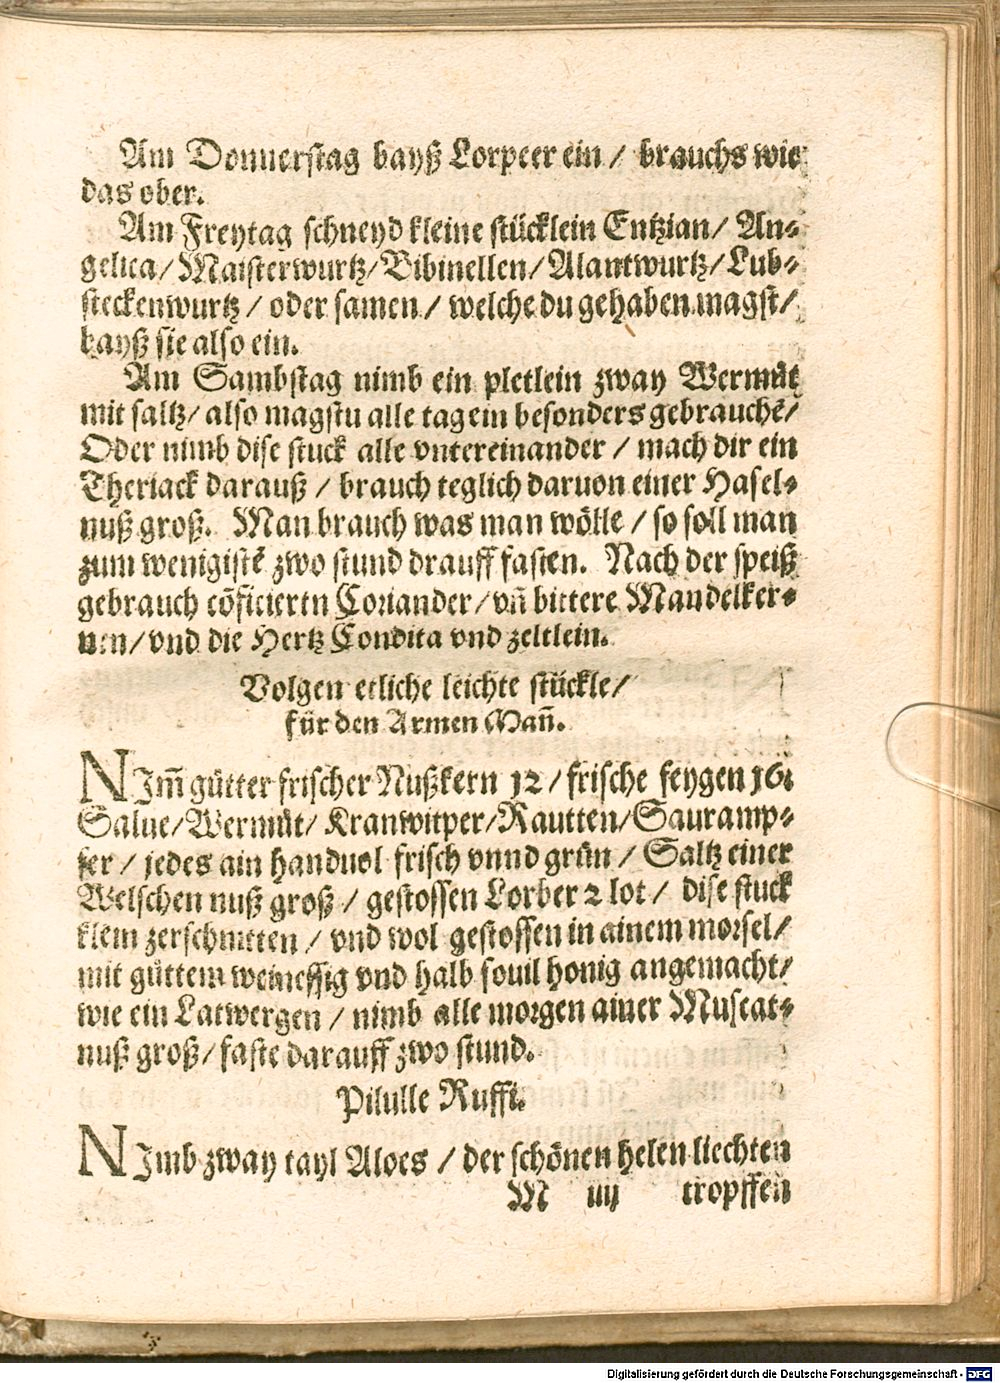 Am Donnerstag bayß Lorpeer ein / brauchs wie
das ober.
Am Freytag schneyd kleine stücklein Entzian/ An⸗
gelica/ Maisterwurtz/ Bibinellen/ Alantwurtz/ Lub⸗
steckenwurtz / oder samen / welche du gehaben magst/
bayß sie also ein.
Am Sambstag nimb ein pletlein zway Wermůt
mit saltz/ also magstu alle tag ein besonders gebrauchē/
Oder nimb dise stuck alle vntereinander / mach dir ein
Theriack darauß / brauch teglich daruon einer Hasel⸗
nuß groß. Man brauch was man wölle / so soll man
zum wenigistē zwo stund drauff fasten. Nach der speiß
gebrauch cōficiertn Coriander/ vñ bittere Mandelker⸗
nen/ vnd die Hertz Condita vnd zeltlein.
Volgen etliche leichte stückle/
für den Armen Mañ.
NIm̃ gůtter frischer Nußkern 12/ frische feygen 16.
Salue/ Wermůt/ Kranwitper/ Rautten/ Sauramp⸗
fer / jedes ain handuol frisch vnnd grůn / Saltz einer
Welschen nuß groß / gestossen Lorber 2 lot / dise stuck
klein zerschnitten / vnd wol gestossen in ainem morsel/
mit gůttem weinessig vnd halb souil honig angemacht/
wie ein Latwergen / nimb alle morgen ainer Muscat⸗
nuß groß/ faste darauff zwo stund.
Pilulle Ruffi.
NImb zway tayl Aloes / der schönen helen liechten
M iiij tropffen
Digitalisierung gefördert durch die Deutsche Forschungsgemeinschaft - DFG